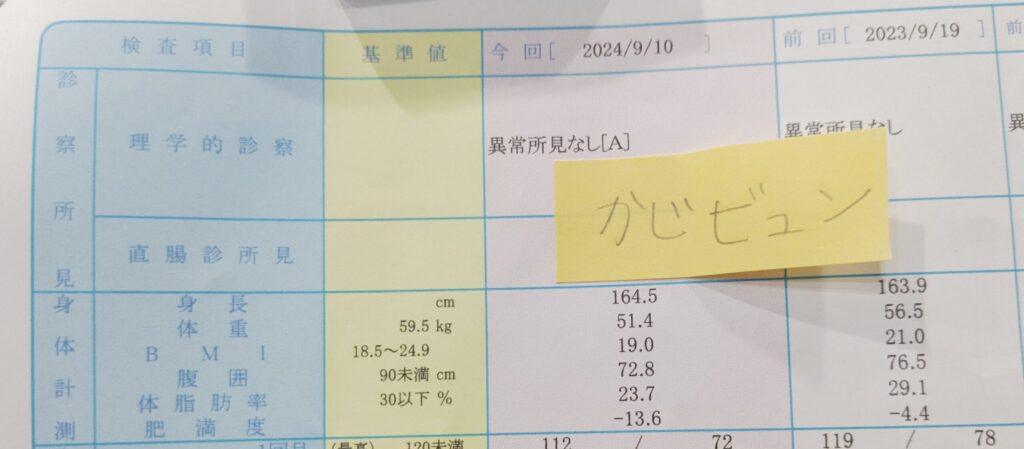 検査項目 基準値 今回[ 2024/9/10 ] 前回[ 2023/9/19 ] 前
診察所見
理学的診察 異常所見なし[A] 異常所見なし 異
かじビュン
直腸診所見
身体計測
身長 cm 164.5 163.9
体重 59.5 kg 51.4 56.5
BMI 18.5～24.9 19.0 21.0
腹囲 90未満 cm 72.8 76.5
体脂肪率 30以下 % 23.7 29.1
肥満度 -13.6 -4.4
1回目 (最高) 120未満 112 / 72 119 / 78